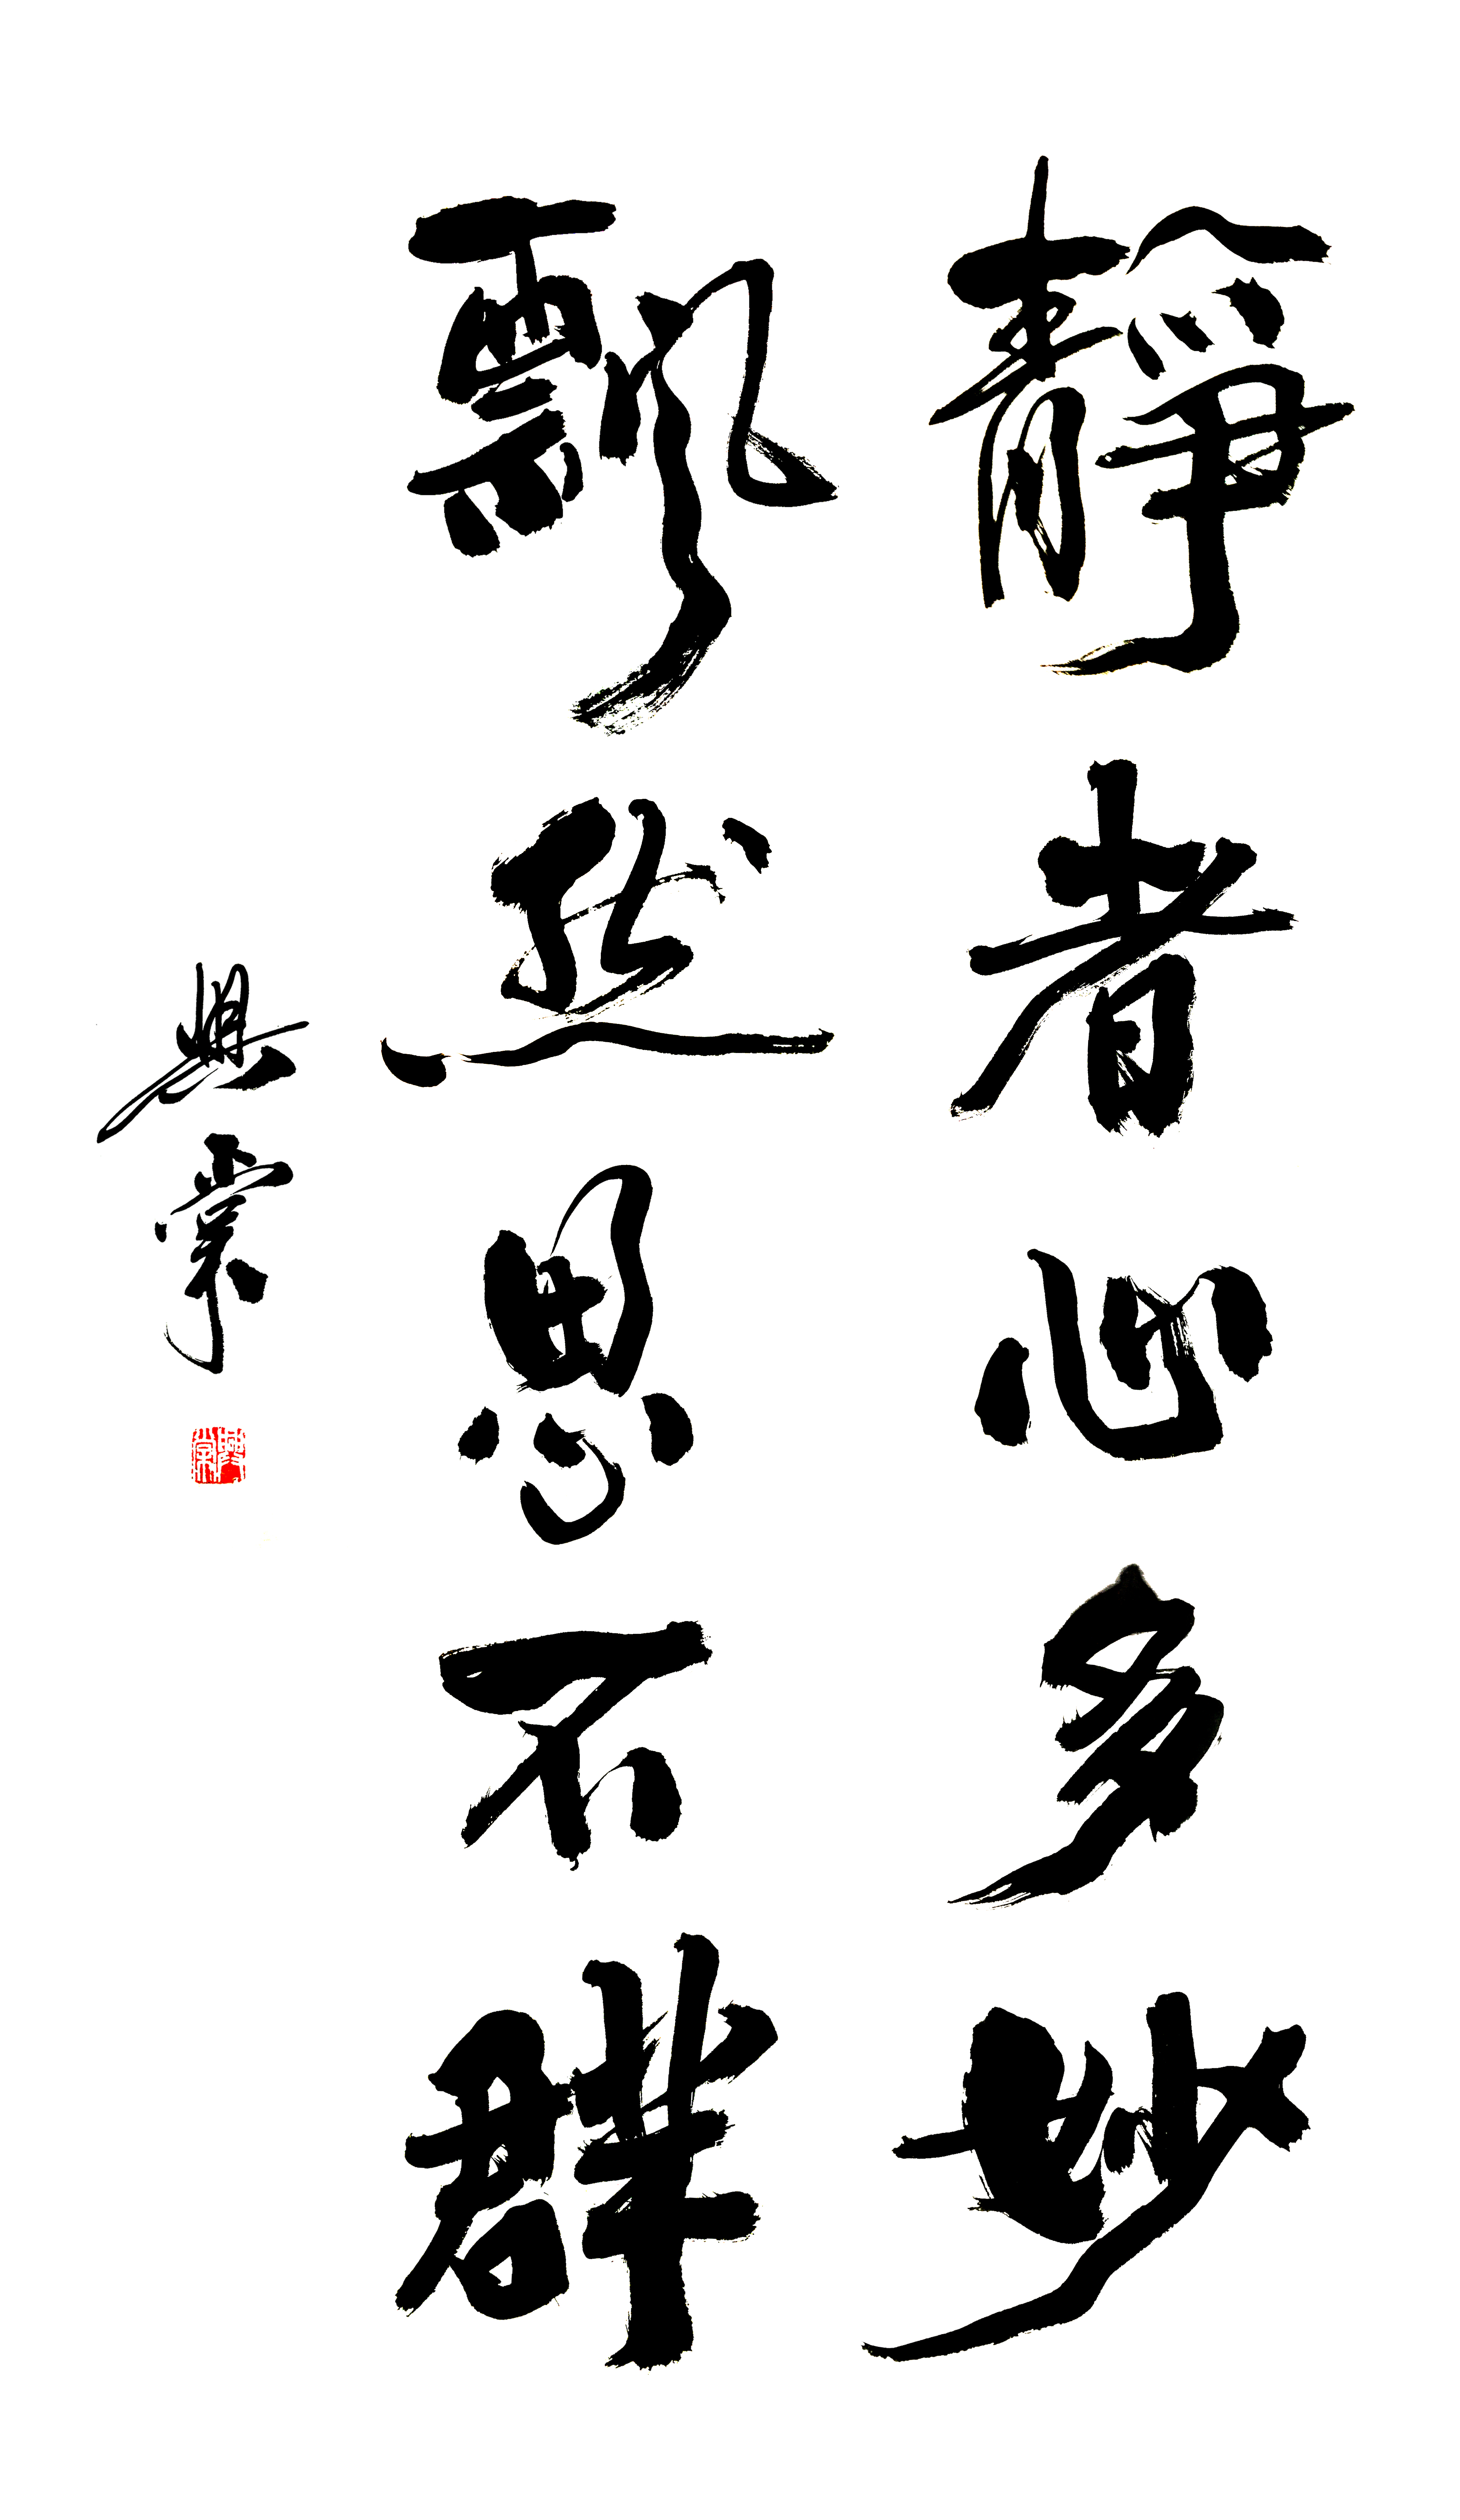 靜者心多妙
飄然思不群
興崇